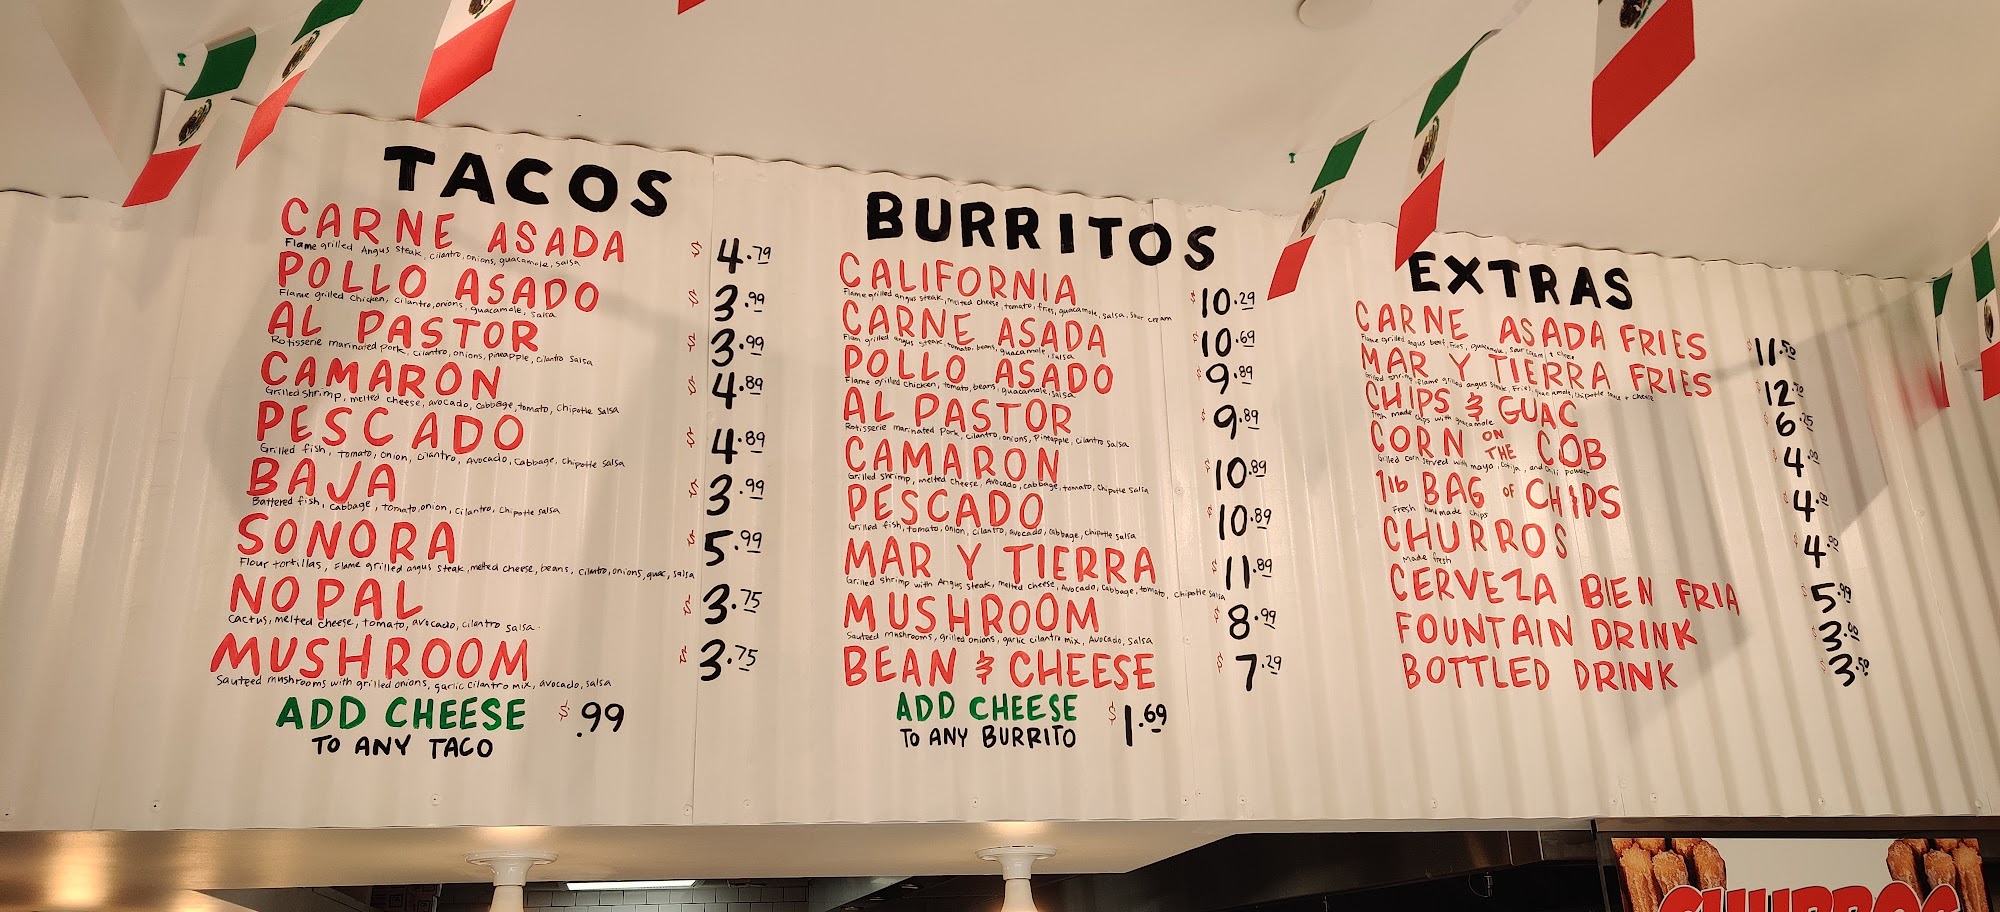 TACOS
CARNE ASADA $4.79
Flame grilled Angus steak, cilantro, onions, guacamole, salsa
POLLO ASADO $3.99
Flame grilled Chicken, cilantro, onions, guacamole, salsa
AL PASTOR $3.99
Rotisserie marinated pork, cilantro, onions, pineapple, cilantro salsa
CAMARON $4.89
Grilled shrimp, melted cheese, avocado, cabbage, tomato, Chipotle salsa
PESCADO $4.89
Grilled fish, tomato, onion, cilantro, Avocado, cabbage, Chipotle salsa
BAJA $3.99
Battered fish, cabbage, tomato, onion, cilantro, chipotle salsa
SONORA $5.99
Flour tortillas, flame grilled angus steak, melted cheese, beans, cilantro, onions, guac, salsa
NOPAL $3.75
Cactus, melted cheese, tomato, avocado, cilantro salsa.
MUSHROOM $3.75
Sauteed mushrooms with grilled onions, garlic cilantro mix, avocado, salsa
ADD CHEESE $.99
TO ANY TACO
BURRITOS
CALIFORNIA $10.29
Flame grilled angus steak, melted cheese, tomato, fries, guacamole, salsa, sour cream
CARNE ASADA $10.69
Flam grilled angus steak, tomato, beans, guacamole, salsa
POLLO ASADO $9.89
Flame grilled chicken, tomato, beans, guacamole, salsa
AL PASTOR $9.89
Rotisserie marinated Pork, cilantro, onions, Pineapple, cilantro Salsa
CAMARON $10.89
Grilled shrimp, melted cheese, Avocado, cabbage, tomato, chipotle salsa
PESCADO $10.89
Grilled fish, tomato, onions, cilantro, avocado, cabbage, Chipotle salsa
MAR Y TIERRA $11.89
Grilled shrimp with Angus steak, melted cheese, Avocado, cabbage, tomato, chipotle salsa
MUSHROOM $8.99
Sauteed mushrooms, grilled onions, garlic cilantro mix, Avocado, salsa
BEAN & CHEESE $7.29
ADD CHEESE $1.69
TO ANY BURRITO
EXTRAS
CARNE ASADA FRIES $11.50
Flame grilled angus beef, fries, guacamole, sour cream & cheese
MAR Y TIERRA FRIES $12
Grilled shrimp, flame grilled angus steak, Fries, guacamole, chipotle sauce + cheese
CHIPS & GUAC $6.25
Fresh made chips with guacamole
CORN ON THE COB $4.00
Grilled corn served with mayo, cotija, and chili powder
1lb BAG OF CHIPS $4
Fresh handmade chips
CHURROS $4
Made fresh
CERVEZA BIEN FRIA $5.99
FOUNTAIN DRINK $3.00
BOTTLED DRINK $3.50
CHURROS